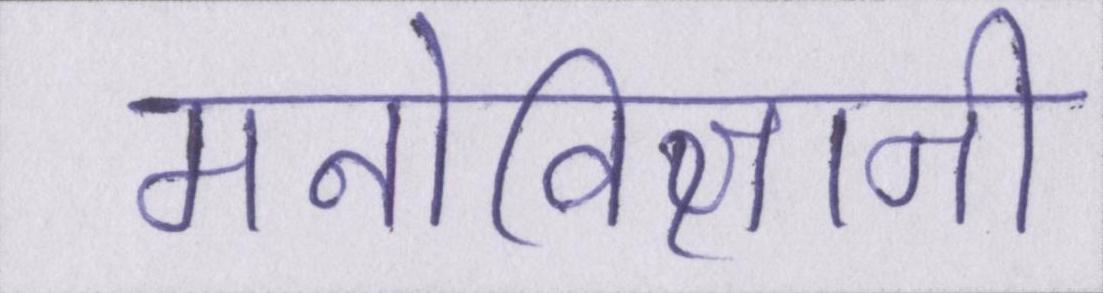 मनोविज्ञानी